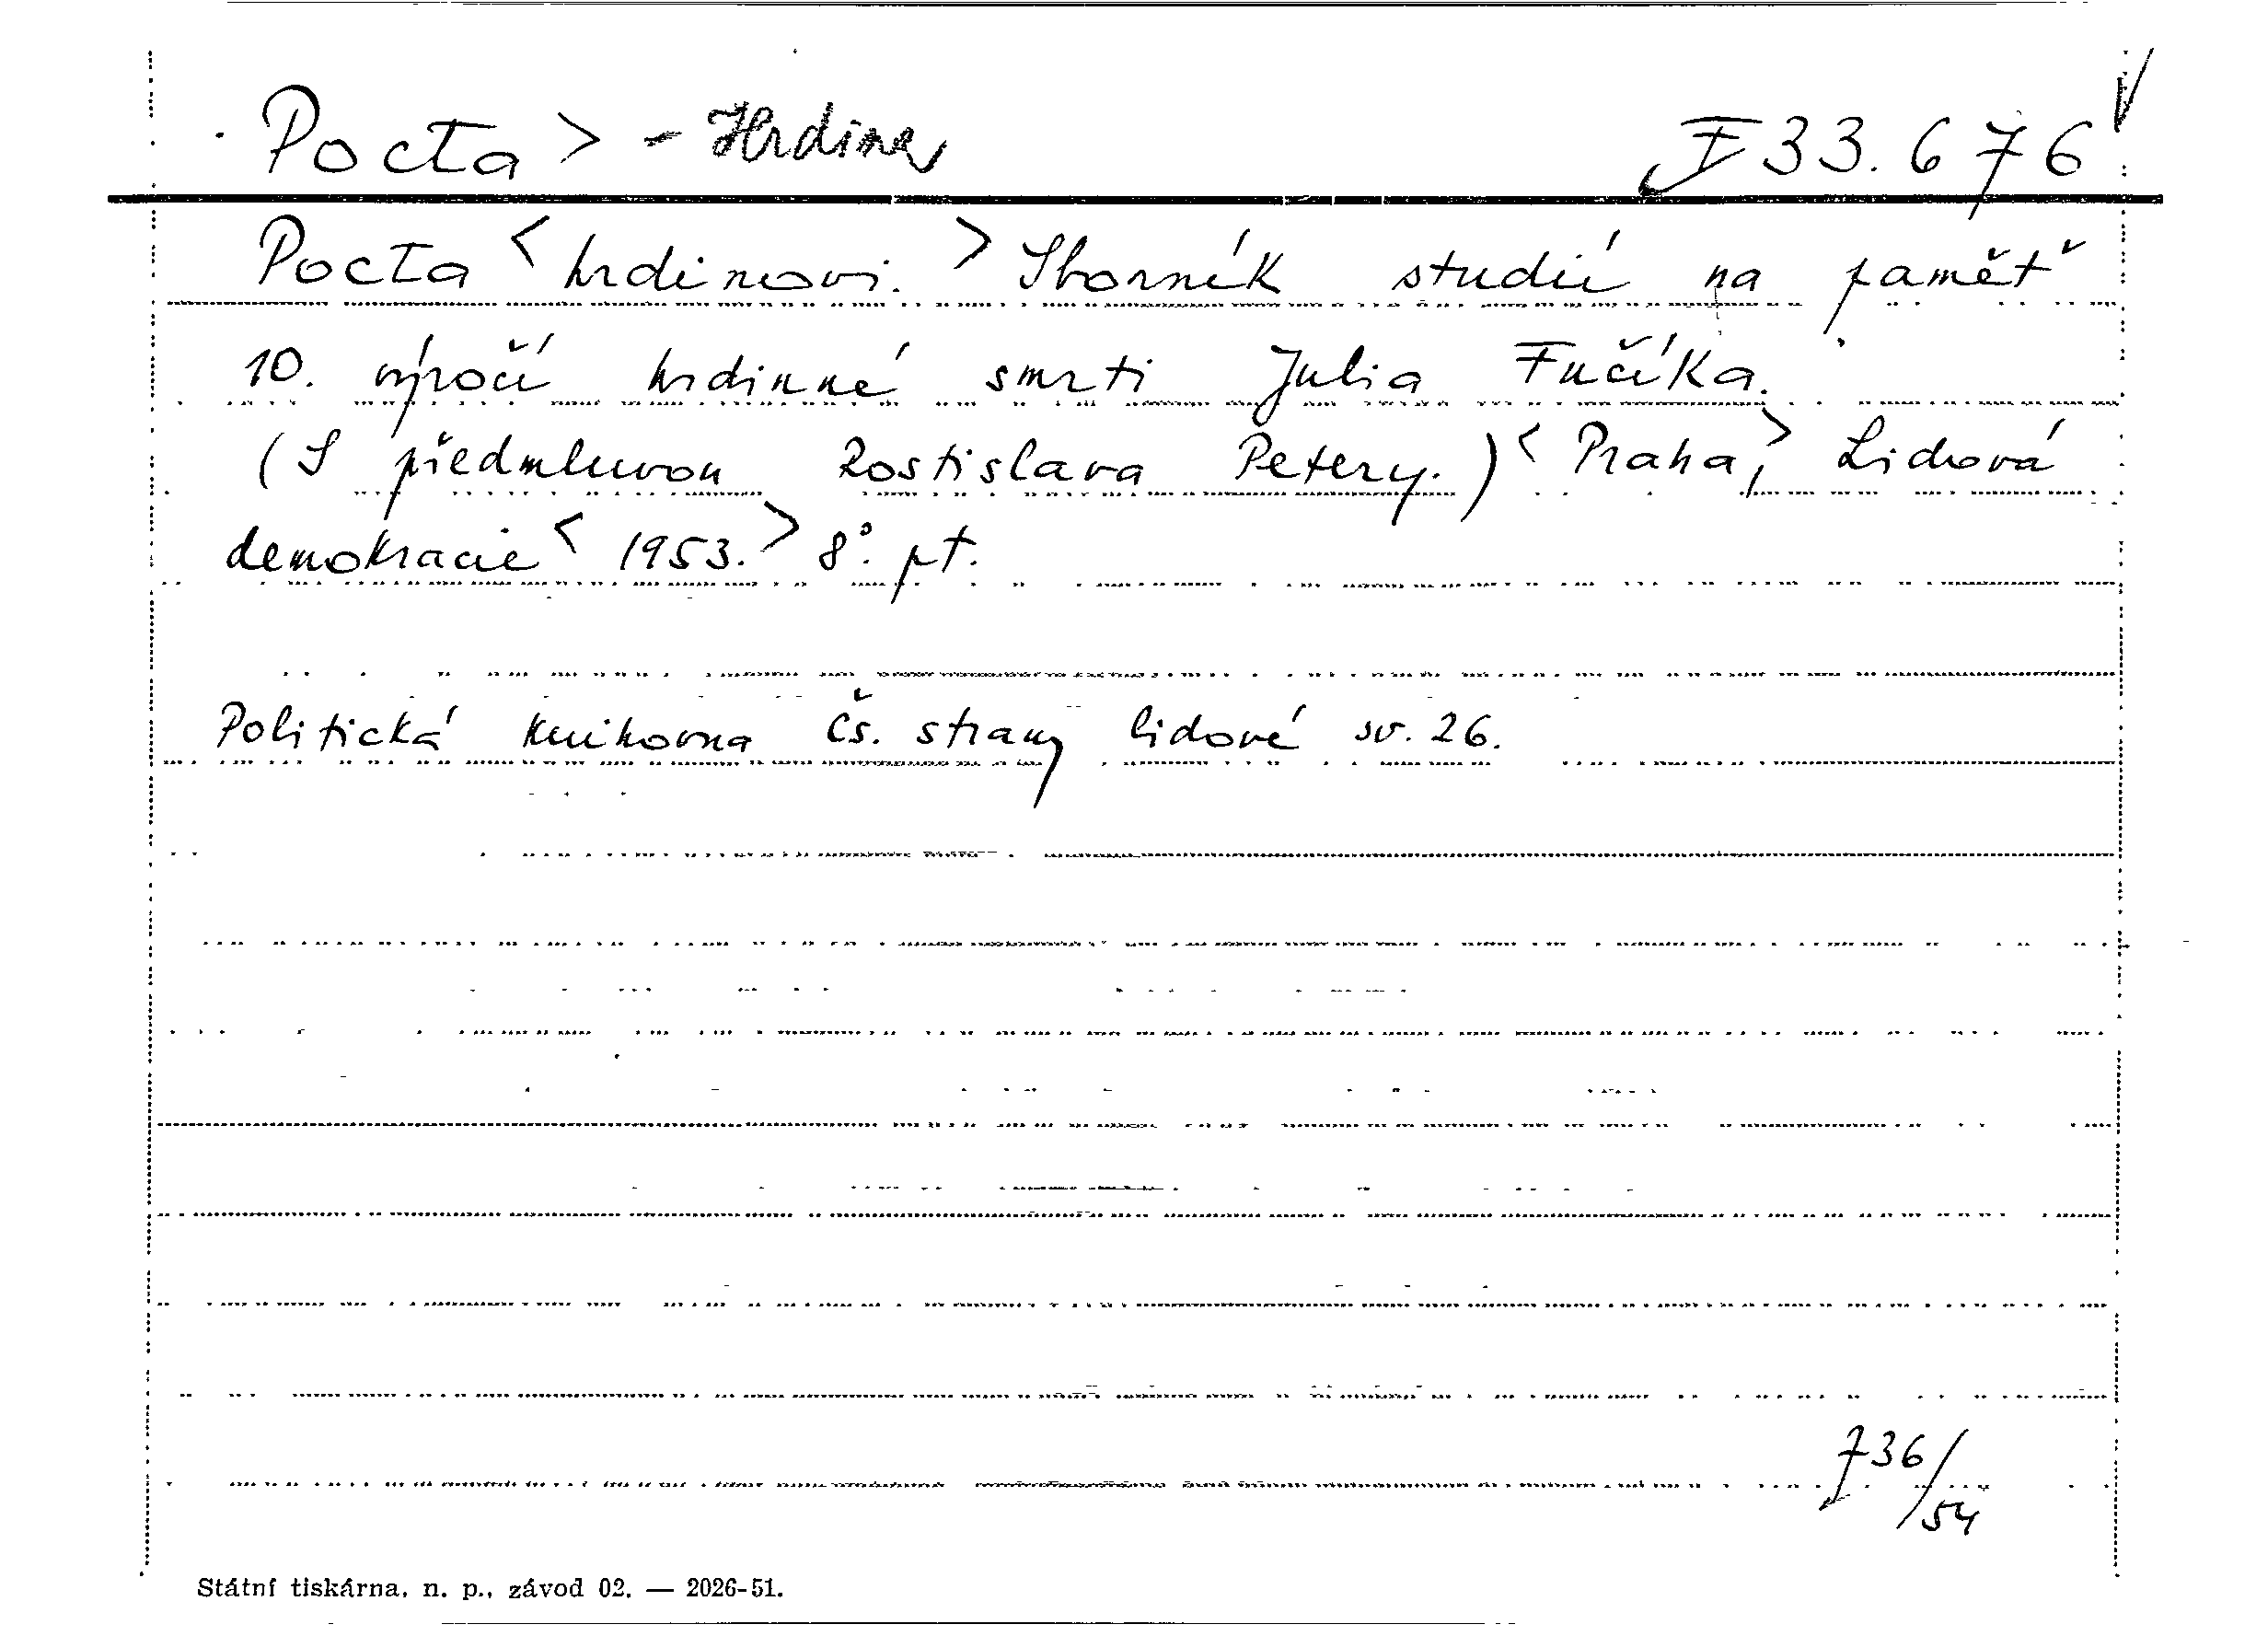 Pocta > - Hrdina I 33.676
Pocta < hrdinovi. > Sborník studií na paměť
10. výročí hrdinné smrti Julia Fučíka.
(S předmluvou Rostislava Petery.) < Praha, > Lidová
demokracie < 1953. > 8°. pt.
Politická knihovna Čs. strany lidové sv. 26.
736/54
Státní tiskárna, n. p., závod 02. — 2026-51.